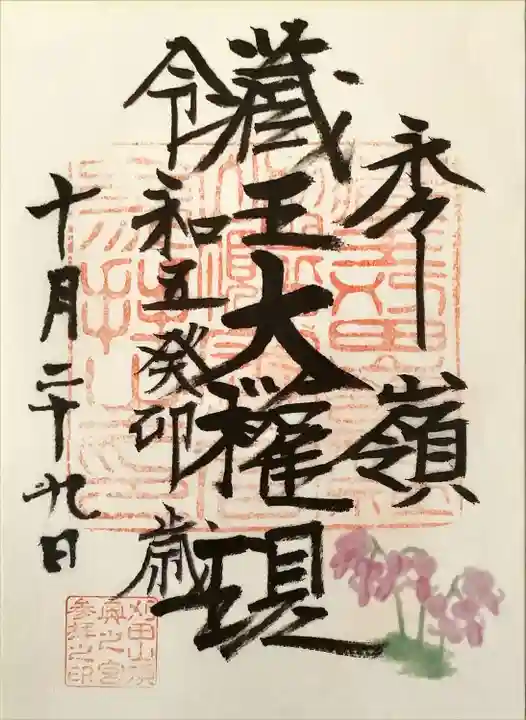 秀嶺
藏王大権現
令和五癸卯歳
十月二十九日
刈田山頂
奥之宮
参拝之印